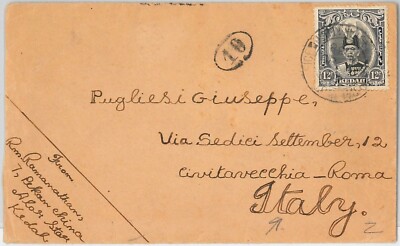 10
12 KEDAH 12
Pugliesi Giuseppe,
Via Sedici Settember, 12
Civitavecchia-Roma
Italy.
From
Rm. Ramanathan,
7, Pekan china
Alor Star
Kedah